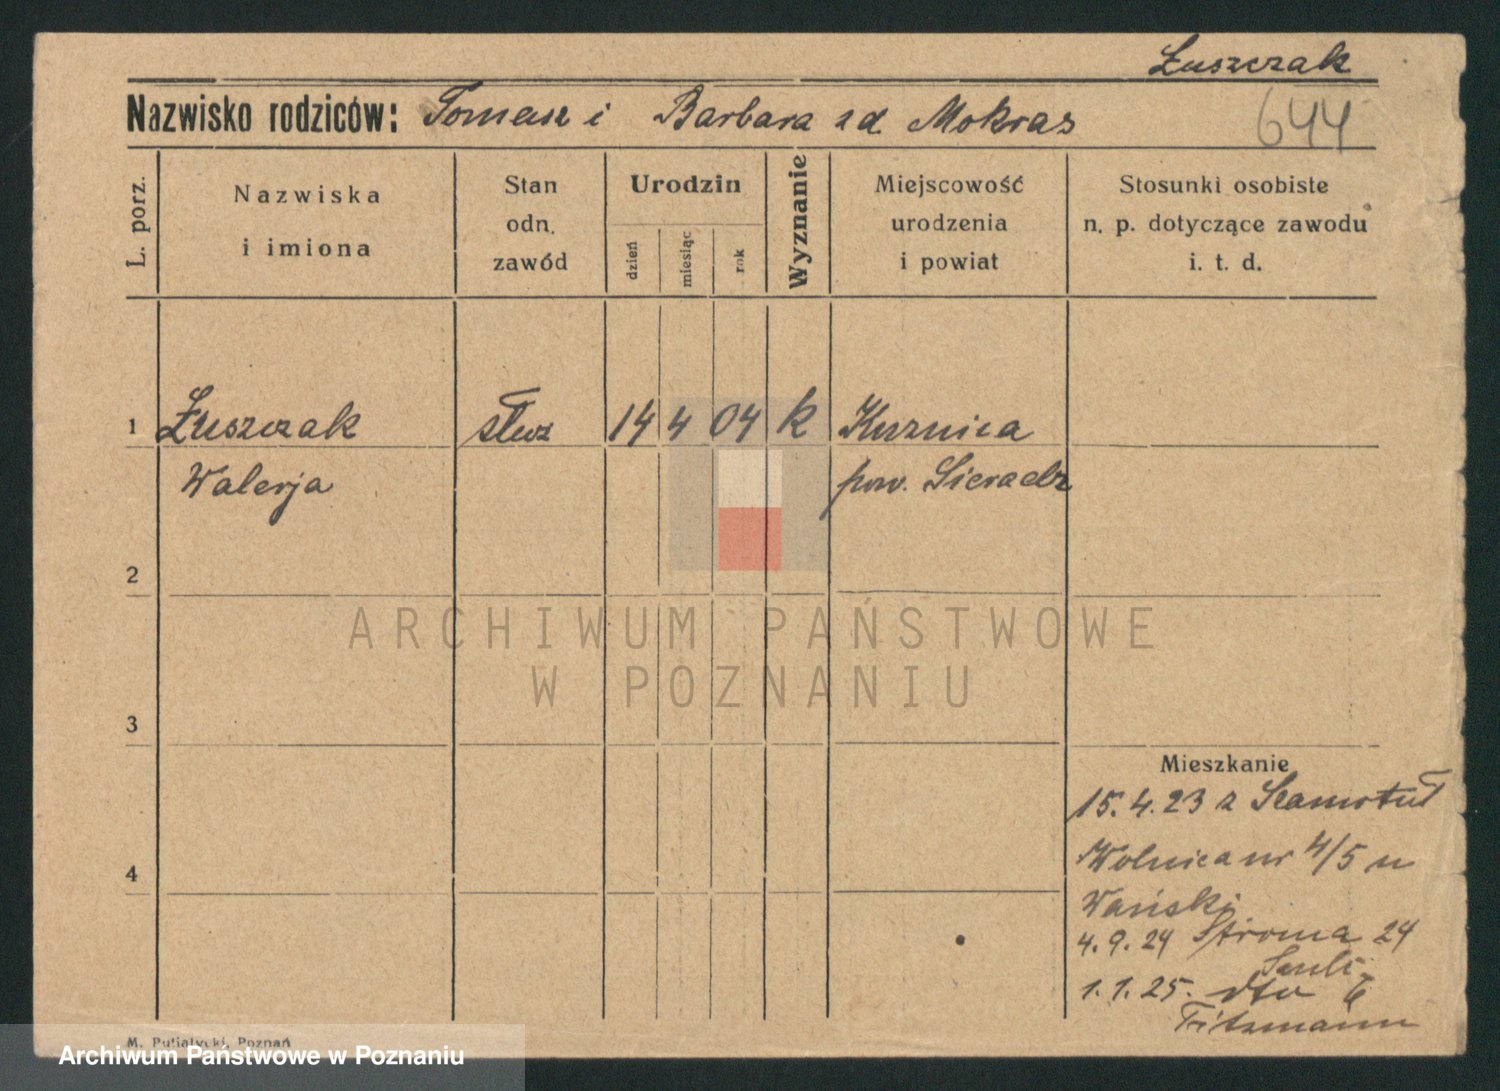 Łuszczak
Nazwisko rodziców: Tomasz i Barbara zd. Mokras
644
L. porz.
Nazwiska
i imiona
Stan
odn.
zawód
Urodzin
dzień
miesiąc
rok
Wyznanie
Miejscowość
urodzenia
i powiat
Stosunki osobiste
n. p. dotyczące zawodu
i. t. d.
1 Łuszczak służ 14 4 04 k Kuznica
Walerja pow. Sieradz
2
3
4
ARCHIWUM PAŃSTWOWE
W POZNANIU
Mieszkanie
15.4.23 z Szamotuł
Wolnica nr 4/5 u
Wański
4.9.24 Stroma 24
1.1.25. dto
Fitzmann
M. Putiatycki, Poznań
Archiwum Państwowe w Poznaniu